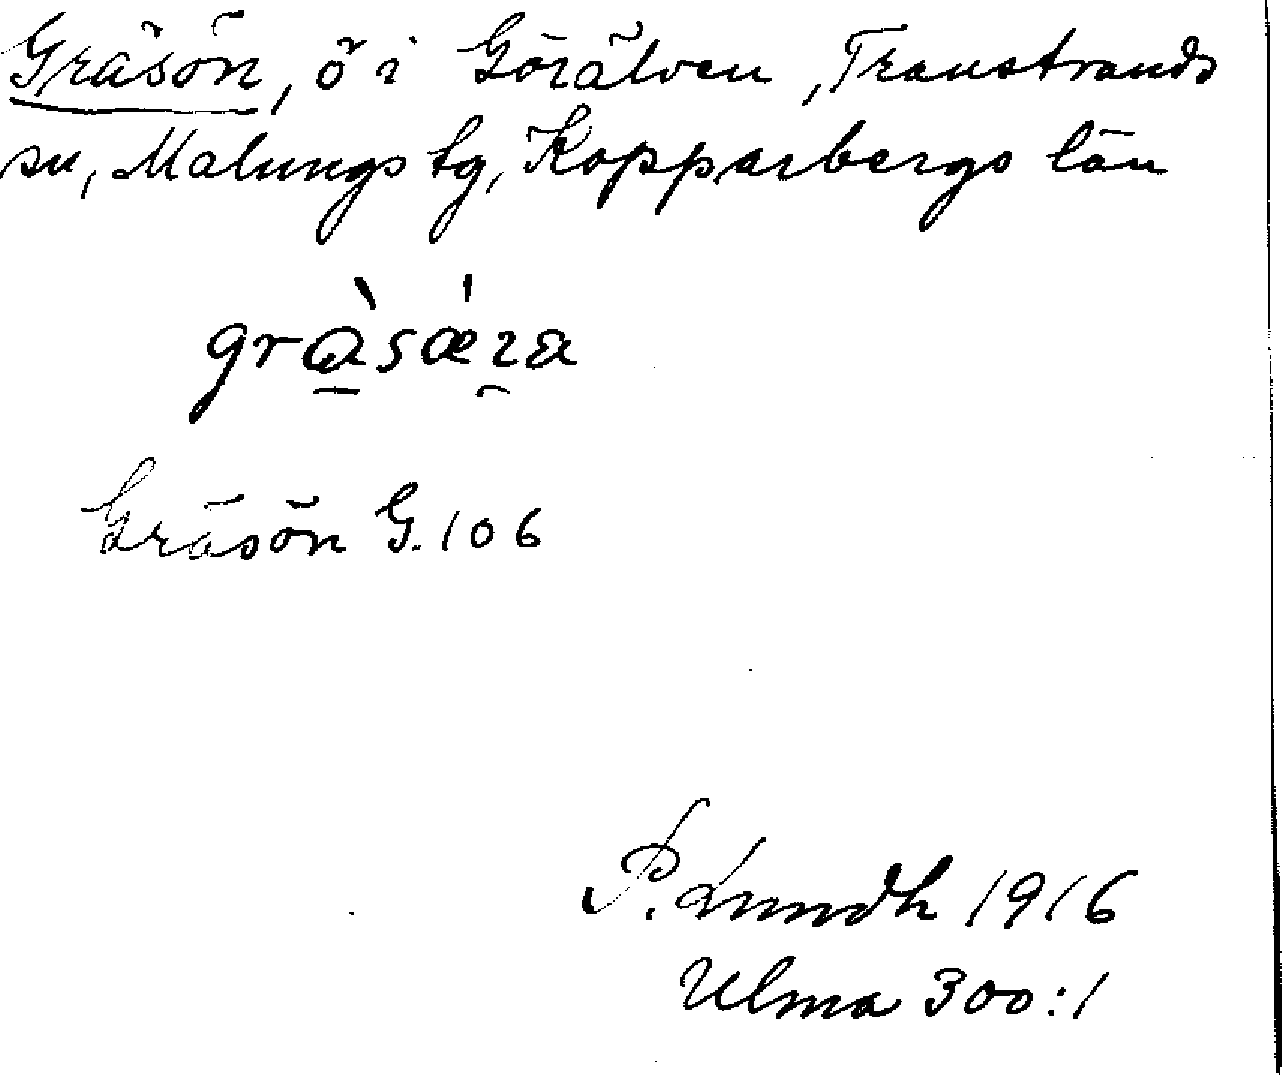 Gräsön, ö i Görälven, Transtrands
sn, Malungs tg, Kopparbergs län
Gräsön G. 106
P. Lundh 1916
Ulma 300:1